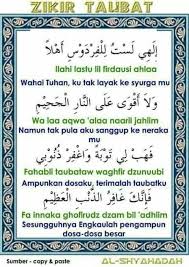 ZIKIR TAUBAT
إِلٰهِي لَسْتُ لِلْفِرْدَوْسِ أَهْلًا
Ilahi lastu lil firdausi ahlaa
Wahai Tuhan, ku tak layak ke syurga mu
وَلَا أَقْوَى عَلَى النَّارِ الْجَحِيْمِ
Wa laa aqwa 'alaa naaril jahiim
Namun tak pula aku sanggup ke neraka
mu
فَهَبْ لِي تَوْبَةً وَاغْفِرْ ذُنُوْبِي
Fahabli taubataw waghfir dzunuubi
Ampunkan dosaku, terimalah taubatku
فَإِنَّكَ غَافِرُ الذَّنْبِ الْعَظِيْمِ
Fa innaka ghofirudz dzam bil 'adhiim
Sesungguhnya Engkaulah pengampun
dosa-dosa besar
Sumber - copy & paste
AL-SHYAHADAH